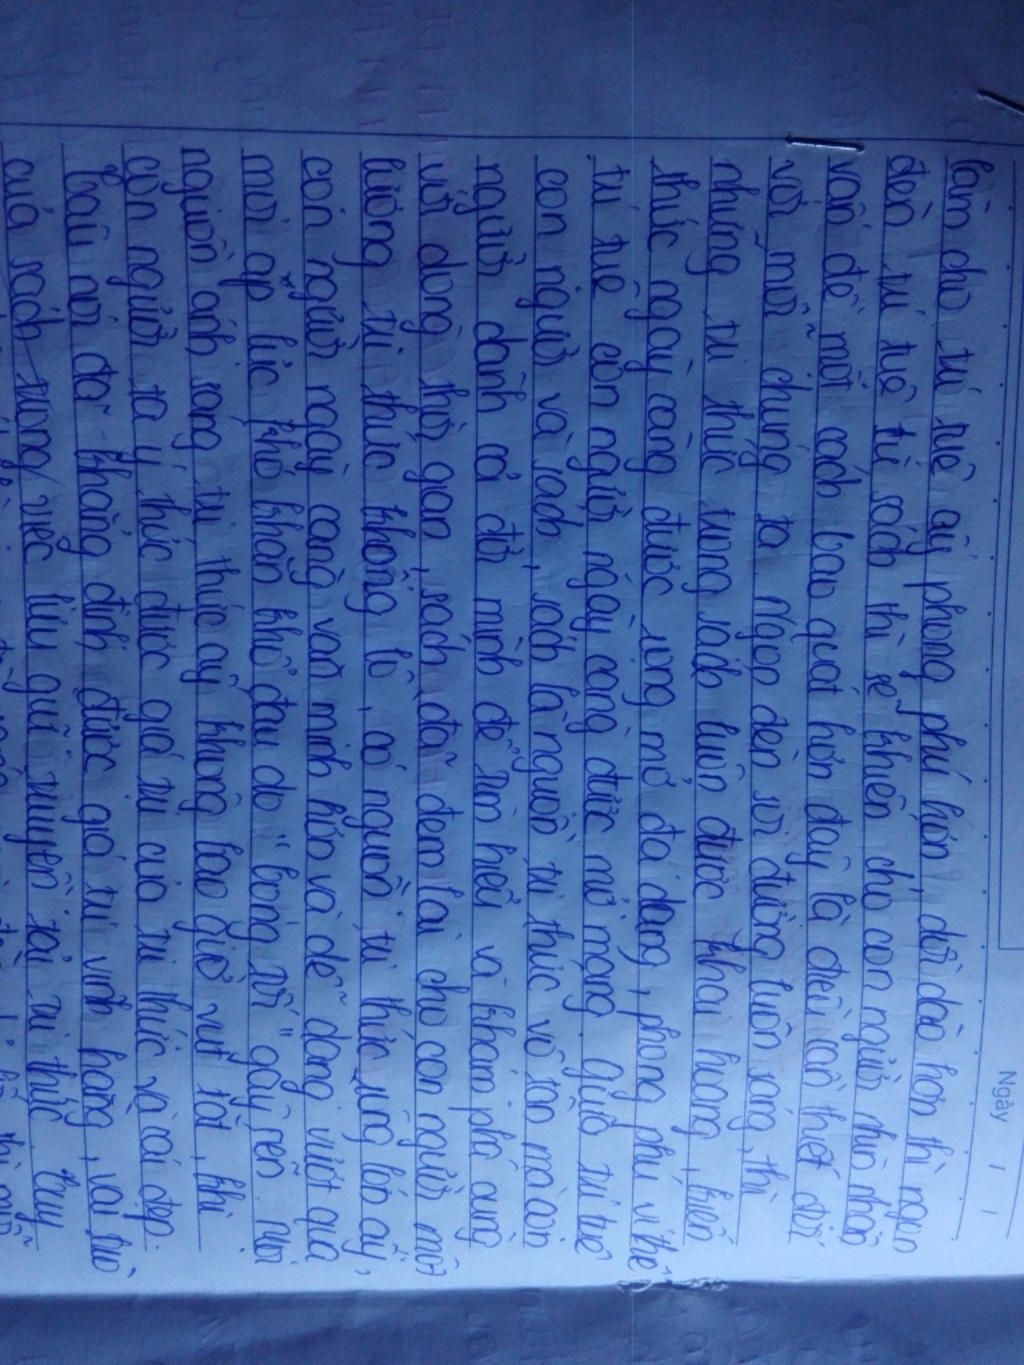 Ngày / /
làm cho trí tuệ ấy phong phú hơn, dồi dào hơn thì ngọn
đèn trí tuệ từ sách thì sẽ khiến cho con người nhìn nhận
vấn đề một cách bao quát hơn đây là điều cần thiết đối
với mỗi chúng ta. Ngọn đèn soi đường luôn sáng, thì
những tri thức trong sách luôn được khai hoang, kiến
thức ngày càng được rộng mở đa dạng, phong phú vì thế
trí tuệ con người ngày càng được mở mang. Giữa trí tuệ
con người và sách, sách là nguồn tri thức vô tận mà con
người dành cả đời mình để tìm hiểu và khám phá cùng
với dòng thời gian, sách đã đem lại cho con người một
lượng tri thức khổng lồ, có nguồn tri thức rộng lớn ấy,
con người ngày càng văn minh hơn và dễ dàng vượt qua
mọi áp lực khó khăn khổ đau do "bóng tối" gây nên. Mọi
nguồn ánh sáng tri thức ấy không bao giờ vụt tắt, khi
con người ta ý thức được giá trị của tri thức và cái đẹp.
Câu nói đã khẳng định được giá trị vĩnh hằng, vai trò
của sách trong việc lưu giữ truyền tải tri thức. Tuy